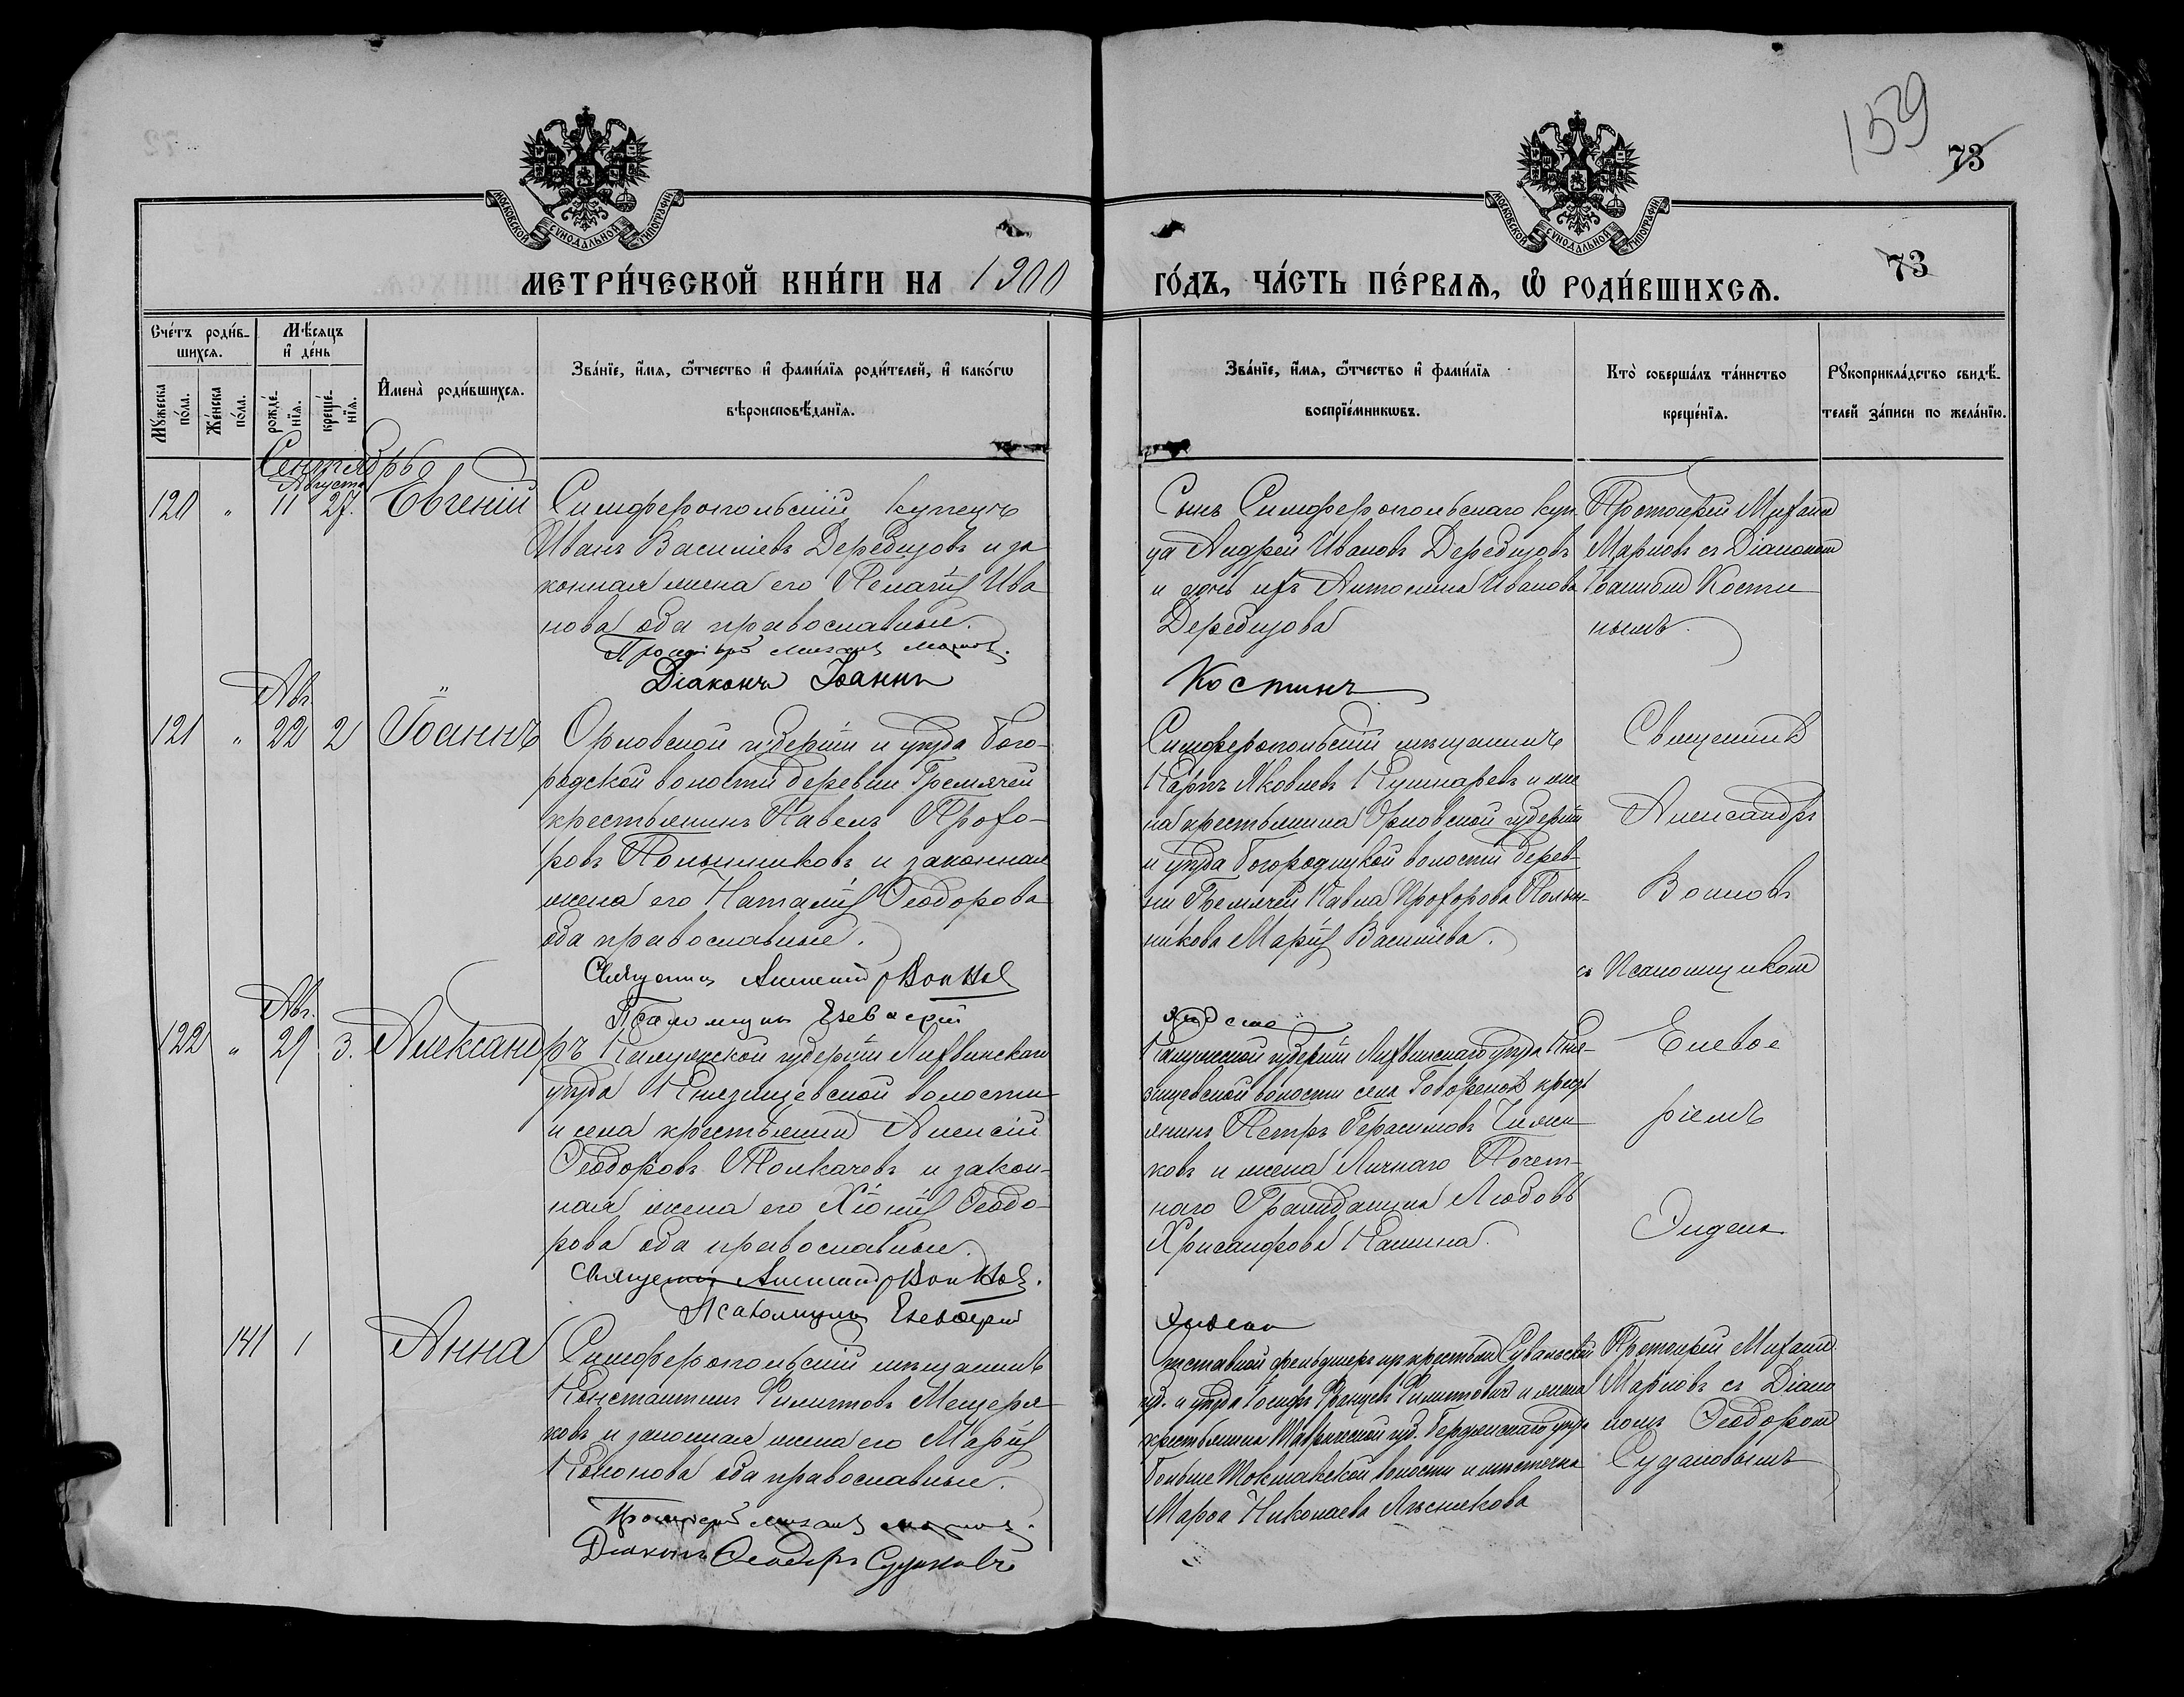 159
73
МОСКОВСКОЙ СѴНОДАЛЬНОЙ ТИПОГРАФІИ
МОСКОВСКОЙ СѴНОДАЛЬНОЙ ТИПОГРАФІИ
73
МЕТРИ́ЧЕСКОЙ КНИ́ГИ НА 1900
ГО́ДЪ, ЧА́СТЬ ПЕ́РВАЯ, Ѽ РОДИ́ВШИХСЯ.
Сче́тъ роди́в-
шихся.
Мѣ́сяцъ
и де́нь
Мꙋ́жеска по́ла.
Же́нска по́ла.
рожде́-
нїя.
креще́-
нїя.
Имена̀ роди́вшихся.
Зва́нїе, и́мя, ѻ́тчество и фами́лїя роди́телей, и како́гѡ
вѣроисповѣ́данїя.
Зва́нїе, и́мя, ѻ́тчество и фами́лїя
воспрїе́мникѡвъ.
Кто̀ соверша́лъ та́инство
креще́нїя.
Рꙋкоприкла́дство свидѣ́-
телей за́писи по жела́нїю.
Сентябрь
Августа
120 " 11 27. Евгеній
Симферопольскій купецъ
Иванъ Васильевъ Деревицовъ и за
конная жена его Пелагія Ива
нова оба православные.
Протоіерей Михаилъ Марковъ.
Діаконъ Іоаннъ
Сынъ Симферопольскаго куп
ца Андрей Ивановъ Деревицовъ
и дочь ихъ Антонина Иванова
Деревицова
Костинъ
Протоіерей Михаилъ
Марковъ съ Діакономъ
Іоанномъ Кости
нымъ.
Авг.
121 " 22 2 Іоаннъ
Орловской губерніи и уѣзда Бого-
родской волости деревни Гремячей
крестьянинъ Павелъ Прохо-
ровъ Полынниковъ и законная
жена его Наталія Ѳеодорова
оба православные.
Священникъ Александръ Волковъ
Псаломщикъ Елевѳерій
Симферопольскій мѣщанинъ
Карпъ Яковлевъ Кушнаревъ и же
на крестьянина Орловской губерніи
и уѣзда Богородицкой волости дерев-
ни Гремячей Павла Прохорова Полын-
никова Марія Васильева.
Священникъ
Александръ
Волковъ
съ Псаломщикомъ
Елевѳе
ріемъ
Авг.
122 " 29 3. Александръ
Калужской губерніи Лихвинскаго
уѣзда Князищевской волости
и села крестьянинъ Алексій
Ѳеодоровъ Толкачевъ и закон-
ная жена его Хіонія Ѳеодо-
рова оба православные.
Священникъ Александръ Волковъ.
Псаломщикъ Елевѳерій
Калужской губерніи Лихвинскаго уѣзда Кня-
зищевской волости села кресть
янинъ Петръ Герасимовъ
ковъ и жена Личнаго Почет-
наго Гражданина Любовь
Хрисанфова Кашина.
141 1 Анна
Симферопольскій мѣщанинъ
Константинъ Филиповъ Мещеря
ковъ и законная жена его Марія
Кононова оба православные.
Протоіерей Михаилъ Марковъ.
Діаконъ Ѳеодоръ Судаковъ
фельдшеръ изъ крестьянъ Сувалкской
губ. и уѣзда Іосифъ Филиповичъ и жена
крестьянина Таврической губ. Бердянскаго уѣзда
Больше Токмакской волости и мѣстечка
Марѳа Николаева Лѣсникова
Протоіерей Михаилъ
Марковъ съ Діако
номъ Ѳеодоромъ
Судаковымъ